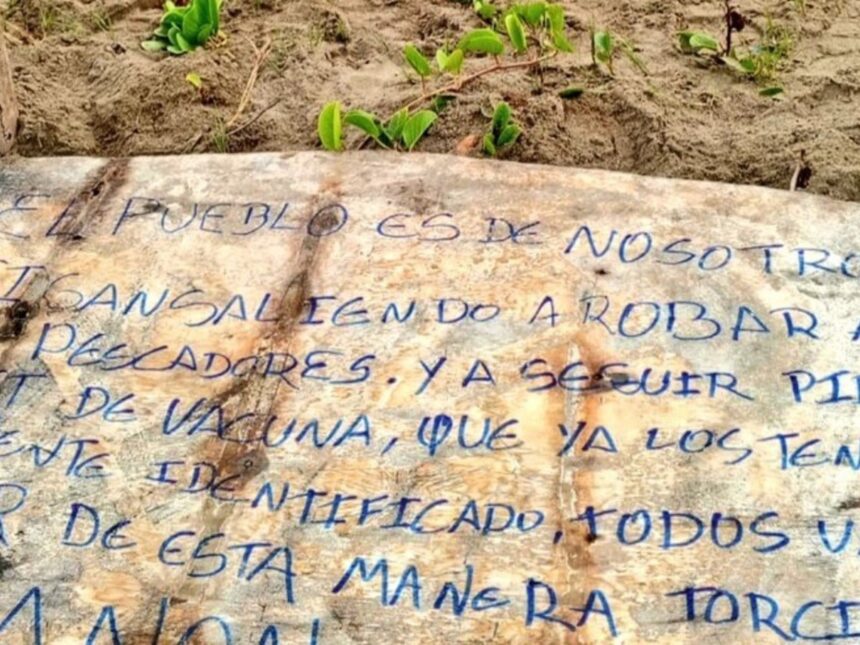 EL PUEBLO ES DE NOSOTRO
SIGAN SALIENDO A ROBAR A
PESCADORES. Y A SEGUIR PI
DE VACUNA, QUE YA LOS TEN
ENTE IDENTIFICADO, TODOS V
R DE ESTA MANERA TORCI